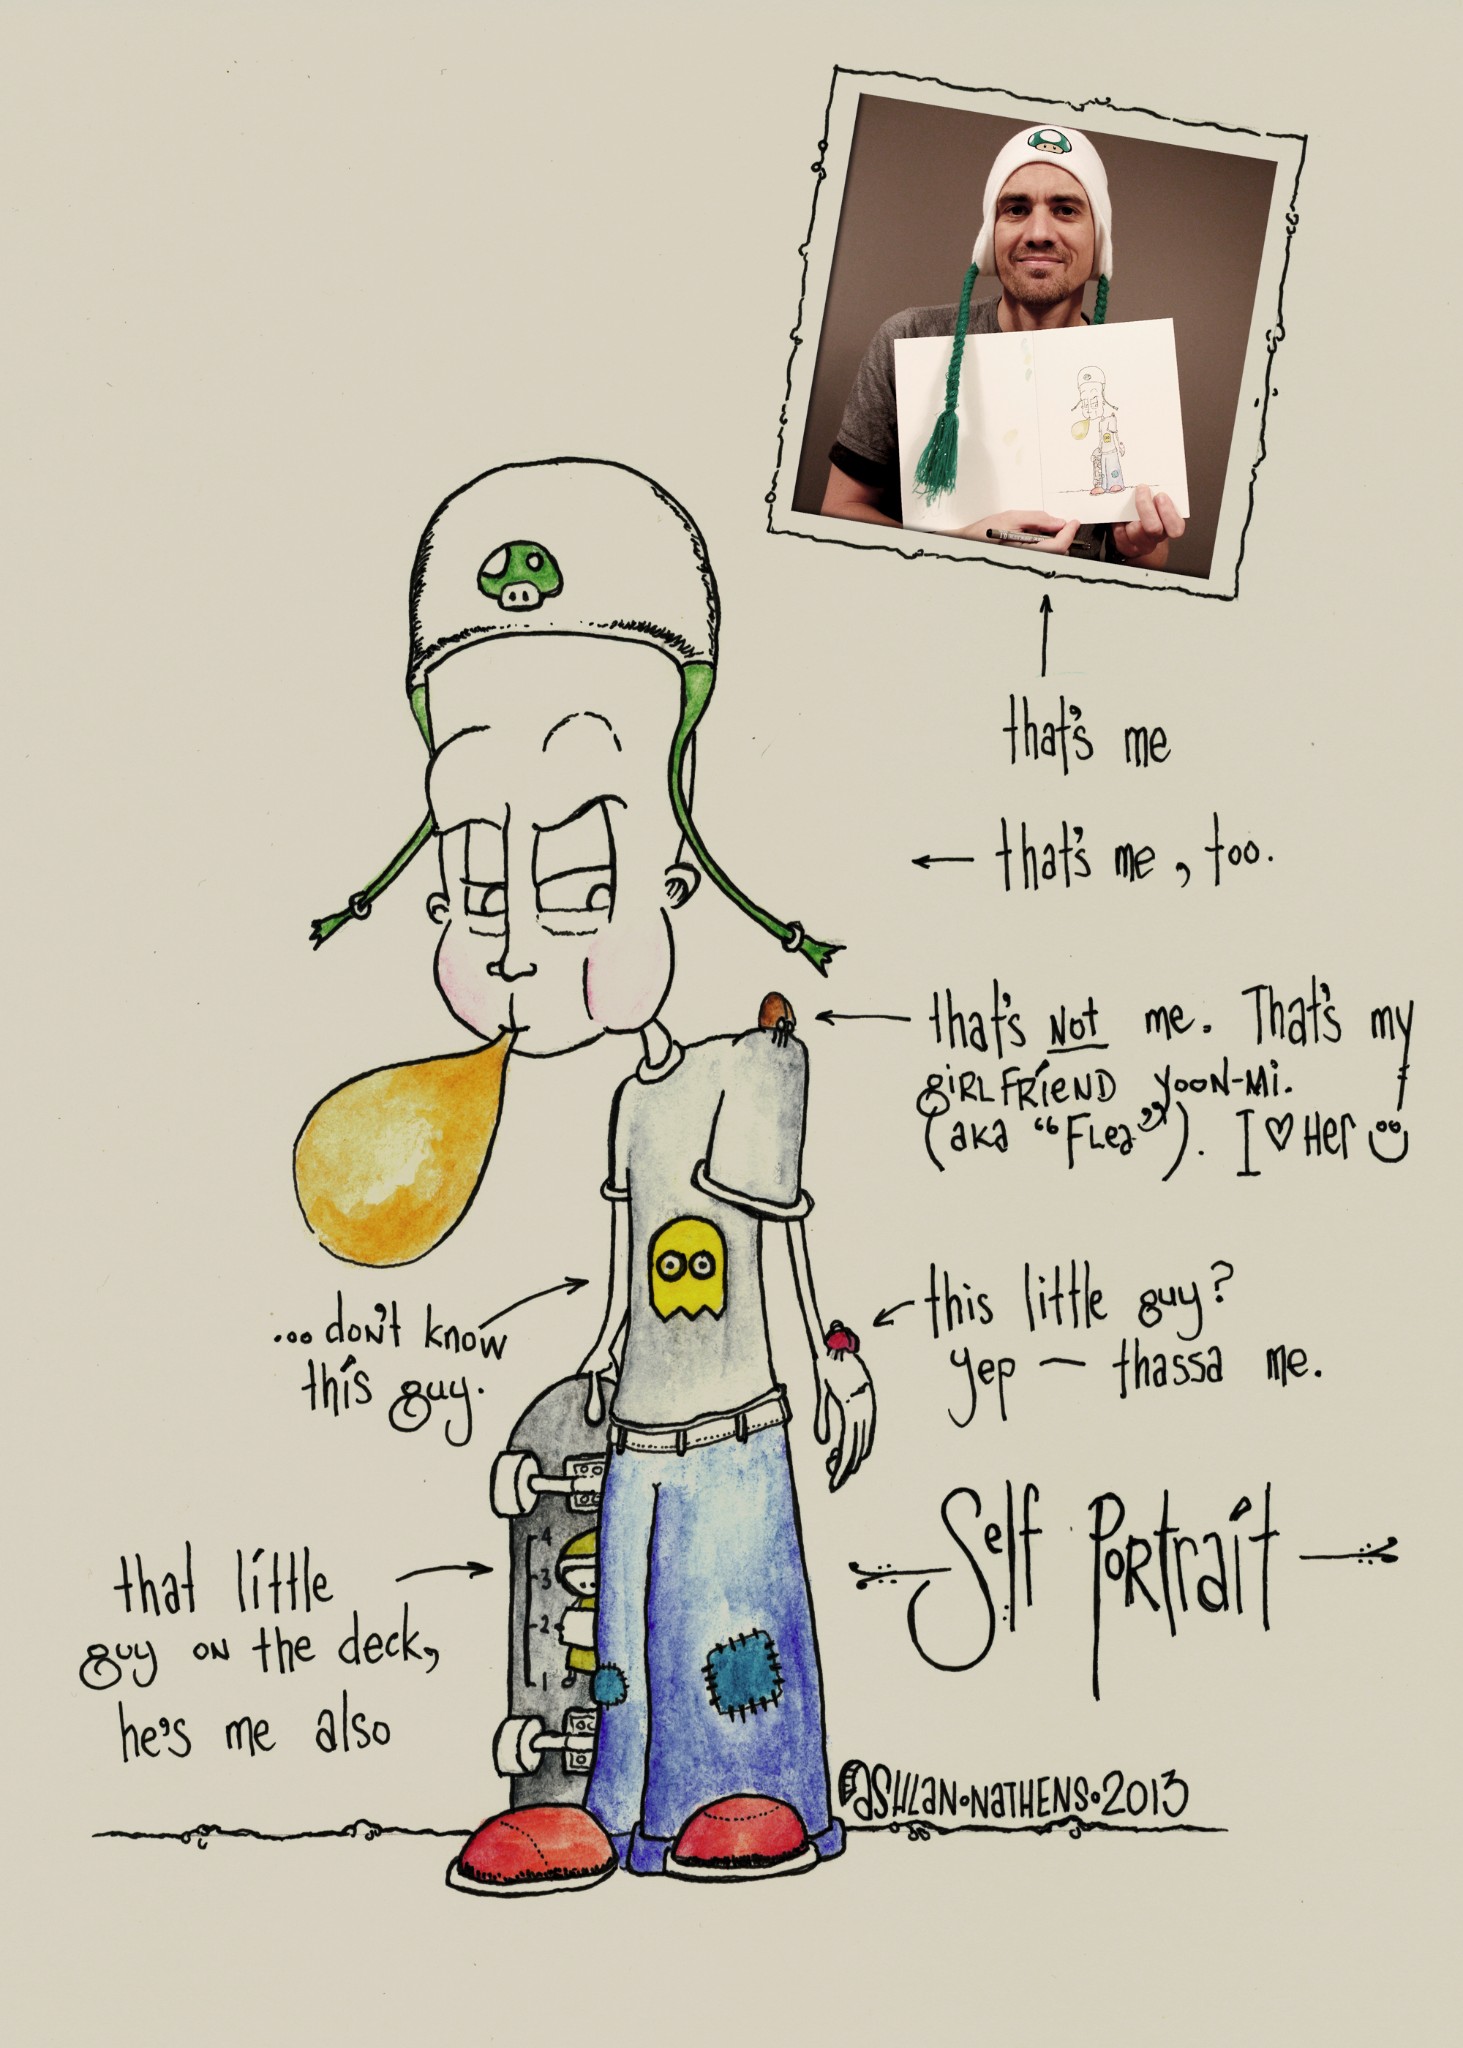 that's me
that's me, too.
that's NOT me. That's my
giRLFRiEND YOON-Mi.
(aka "FLea"). I ♡ HEr
...don't know
this guy.
this little guy?
yep — thassa me.
Self PORtrait
that little
guy ON the deck,
he's me also
4
3
2
1
©ASHLAN•NATHENS•2013